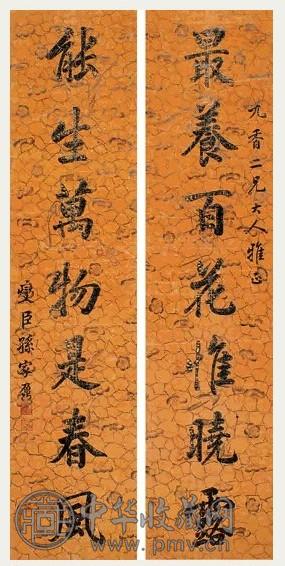 九香二兄大人雅正
最養百花惟曉露
能生萬物是春風
燮臣孫家鼐
中华收藏网
www.pmv.cn